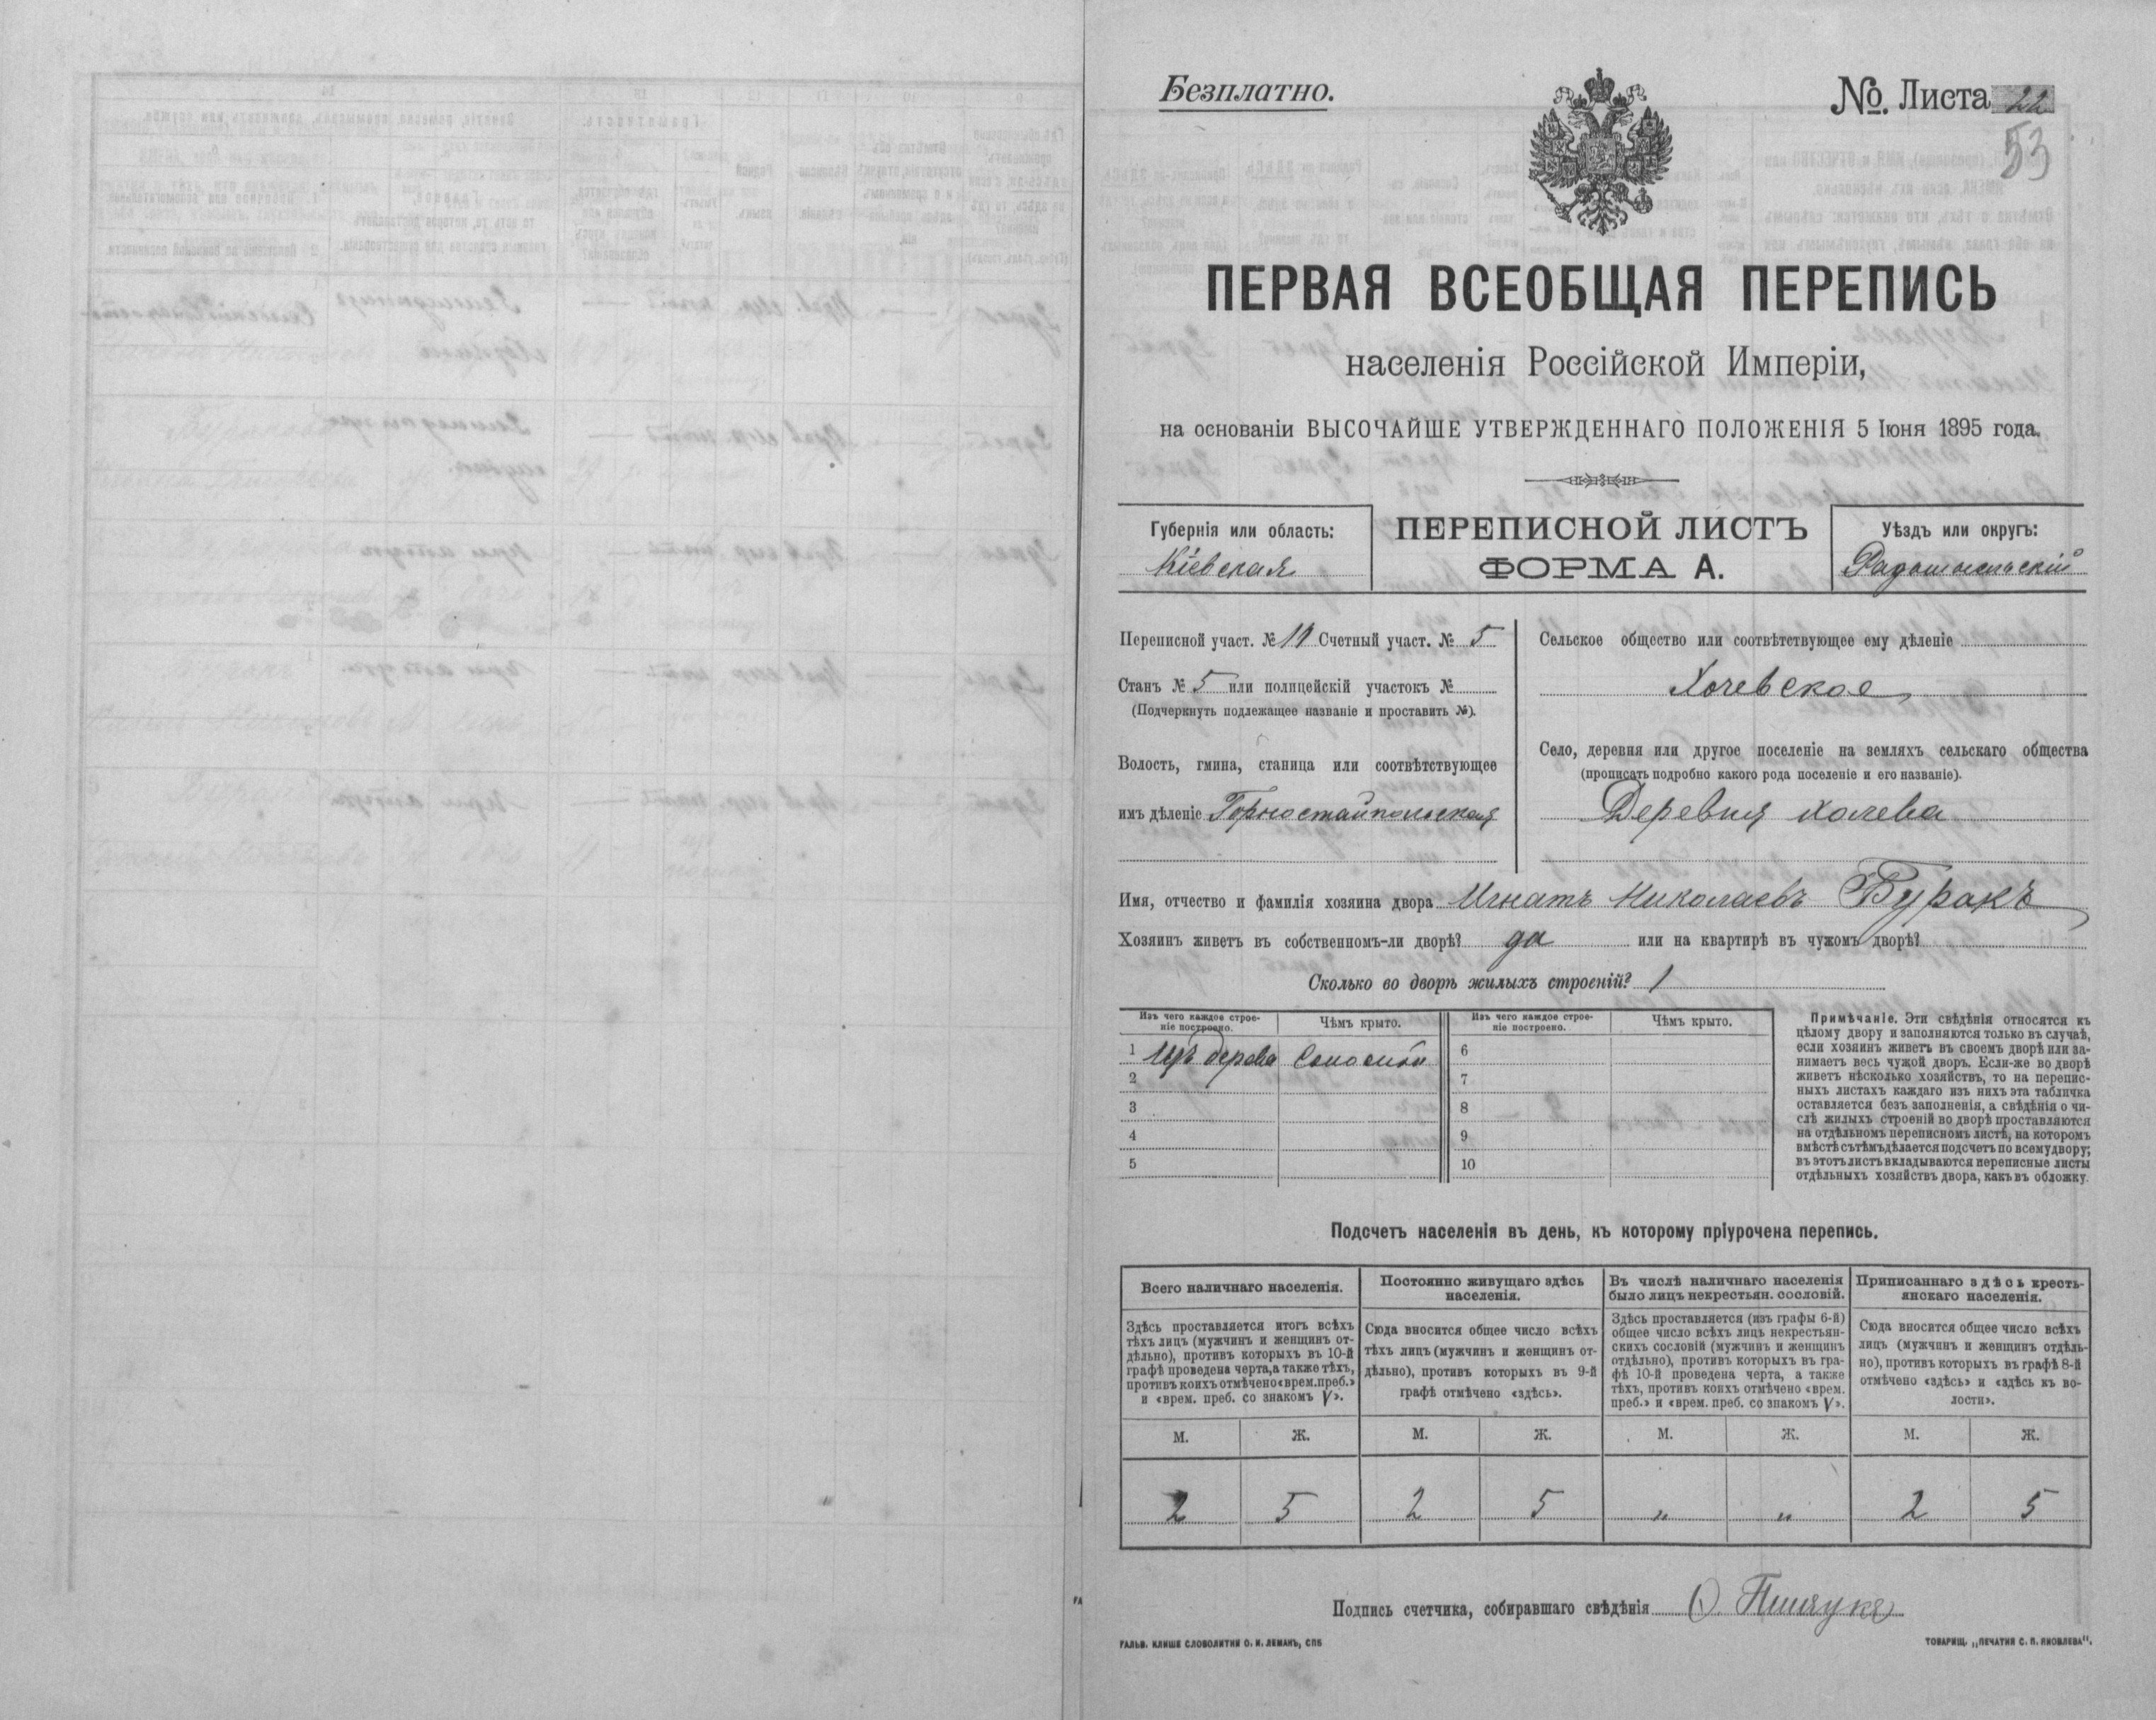 Безплатно.
№. Листа 22
53
ПЕРВАЯ ВСЕОБЩАЯ ПЕРЕПИСЬ
населенія Россійской Имперіи,
на основаніи ВЫСОЧАЙШЕ УТВЕРЖДЕННАГО ПОЛОЖЕНІЯ 5 Іюня 1895 года.
Губернія или область:
Кіевская
ПЕРЕПИСНОЙ ЛИСТЪ
ФОРМА А.
Уѣздъ или округъ:
Радомысльскій
Переписной участ. № 19 Счетный участ. № 5
Станъ № 5 или полицейскій участокъ №
(Подчеркнуть подлежащее названіе и проставить №).
Волость, гмина, станица или соотвѣтствующее
имъ дѣленіе Горностайпольская
Сельское общество или соотвѣтствующее ему дѣленіе
Хочевское
Село, деревня или другое поселеніе на земляхъ сельскаго общества
(прописать подробно какого рода поселеніе и его названіе).
Деревня Хочева
Имя, отчество и фамилія хозяина двора Игнатъ Николаевъ Буракъ
Хозяинъ живетъ въ собственномъ-ли дворѣ? да или на квартирѣ въ чужомъ дворѣ?
Сколько во дворѣ жилыхъ строеній? 1
Изъ чего каждое строе-
ніе построено.
Чѣмъ крыто.
Изъ чего каждое строе-
ніе построено.
Чѣмъ крыто.
1 Изъ дерева Соломой 6
2 7
3 8
4 9
5 10
Примѣчаніе. Эти свѣдѣнія относятся къ
цѣлому двору и заполняются только въ случаѣ,
если хозяинъ живетъ въ своемъ дворѣ или за-
нимаетъ весь чужой дворъ. Если-же во дворѣ
живетъ нѣсколько хозяйствъ, то на перепис-
ныхъ листахъ каждаго изъ нихъ эта табличка
оставляется безъ заполненія, а свѣдѣнія о чи-
слѣ жилыхъ строеній во дворѣ проставляются
на отдѣльномъ переписномъ листѣ, на которомъ
вмѣстѣ съ тѣмъ дѣлается подсчетъ по всему двору;
въ этотъ листъ вкладываются переписные листы
отдѣльныхъ хозяйствъ двора, какъ въ обложку.
Подсчетъ населенія въ день, къ которому пріурочена перепись.
Всего наличнаго населенія.
Здѣсь проставляется итогъ всѣхъ
тѣхъ лицъ (мужчинъ и женщинъ от-
дѣльно), противъ которыхъ въ 10-й
графѣ проведена черта, а также тѣхъ,
противъ коихъ отмѣчено «врем. преб.»
и «врем. преб. со знакомъ V».
Постоянно живущаго здѣсь
населенія.
Сюда вносится общее число всѣхъ
тѣхъ лицъ (мужчинъ и женщинъ от-
дѣльно), противъ которыхъ въ 9-й
графѣ отмѣчено «здѣсь».
Въ числѣ наличнаго населенія
было лицъ некрестьян. сословій.
Здѣсь проставляется (изъ графы 6-й)
общее число всѣхъ лицъ некрестьян-
скихъ сословій (мужчинъ и женщинъ
отдѣльно), противъ которыхъ въ гра-
фѣ 10-й проведена черта, а также
тѣхъ, противъ коихъ отмѣчено «врем.
преб.» и «врем. преб. со знакомъ V».
Приписаннаго здѣсь кресть-
янскаго населенія.
Сюда вносится общее число всѣхъ
лицъ (мужчинъ и женщинъ отдѣль-
но), противъ которыхъ въ графѣ 8-й
отмѣчено «здѣсь» и «здѣсь къ во-
лости».
М. Ж. М. Ж. М. Ж. М. Ж.
2 5 2 5 „ „ 2 5
Подпись счетчика, собиравшаго свѣдѣнія
ГАЛЬВ. КЛИШЕ СЛОВОЛИТНИ О. И. ЛЕМАНЪ, СПБ
ТОВАРИЩ. „ПЕЧАТНЯ С. П. ЯКОВЛЕВА".